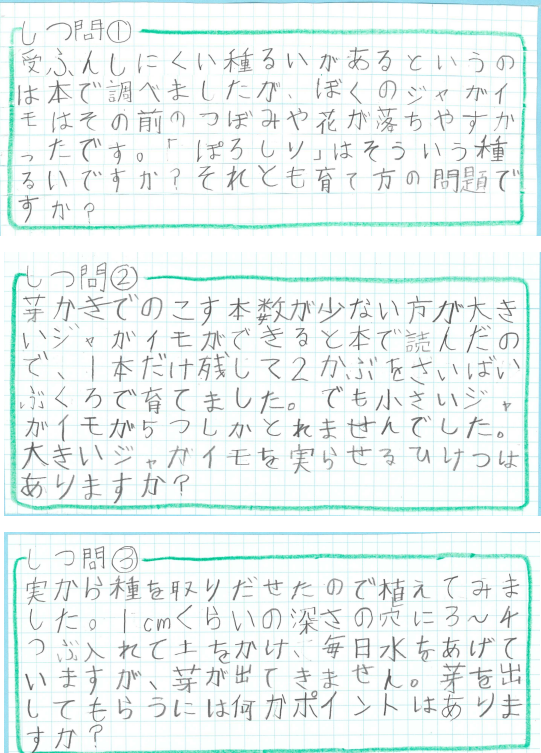 しつ問①
受ふんしにくい種るいがあるというの
は本で調べましたが、ぼくのジャガイ
モはその前のつぼみや花が落ちやすか
ったです。「ぽろしり」はそういう種
るいですか？それとも育て方の問題で
すか？
しつ問②
芽かきでのこす本数が少ない方が大き
いジャガイモができると本で読んだの
で、1本だけ残して2かぶをさいばい
ぶくろで育てました。でも小さいジャ
ガイモが5つしかとれませんでした。
大きいジャガイモを実らせるひけつは
ありますか？
しつ問③
実から種を取りだせたので植えてみま
した。1cmくらいの深さの穴に3〜4
つぶ入れて土をかけ、毎日水をあげて
いますが、芽が出てきません。芽を出
してもらうには何かポイントはありま
すか？